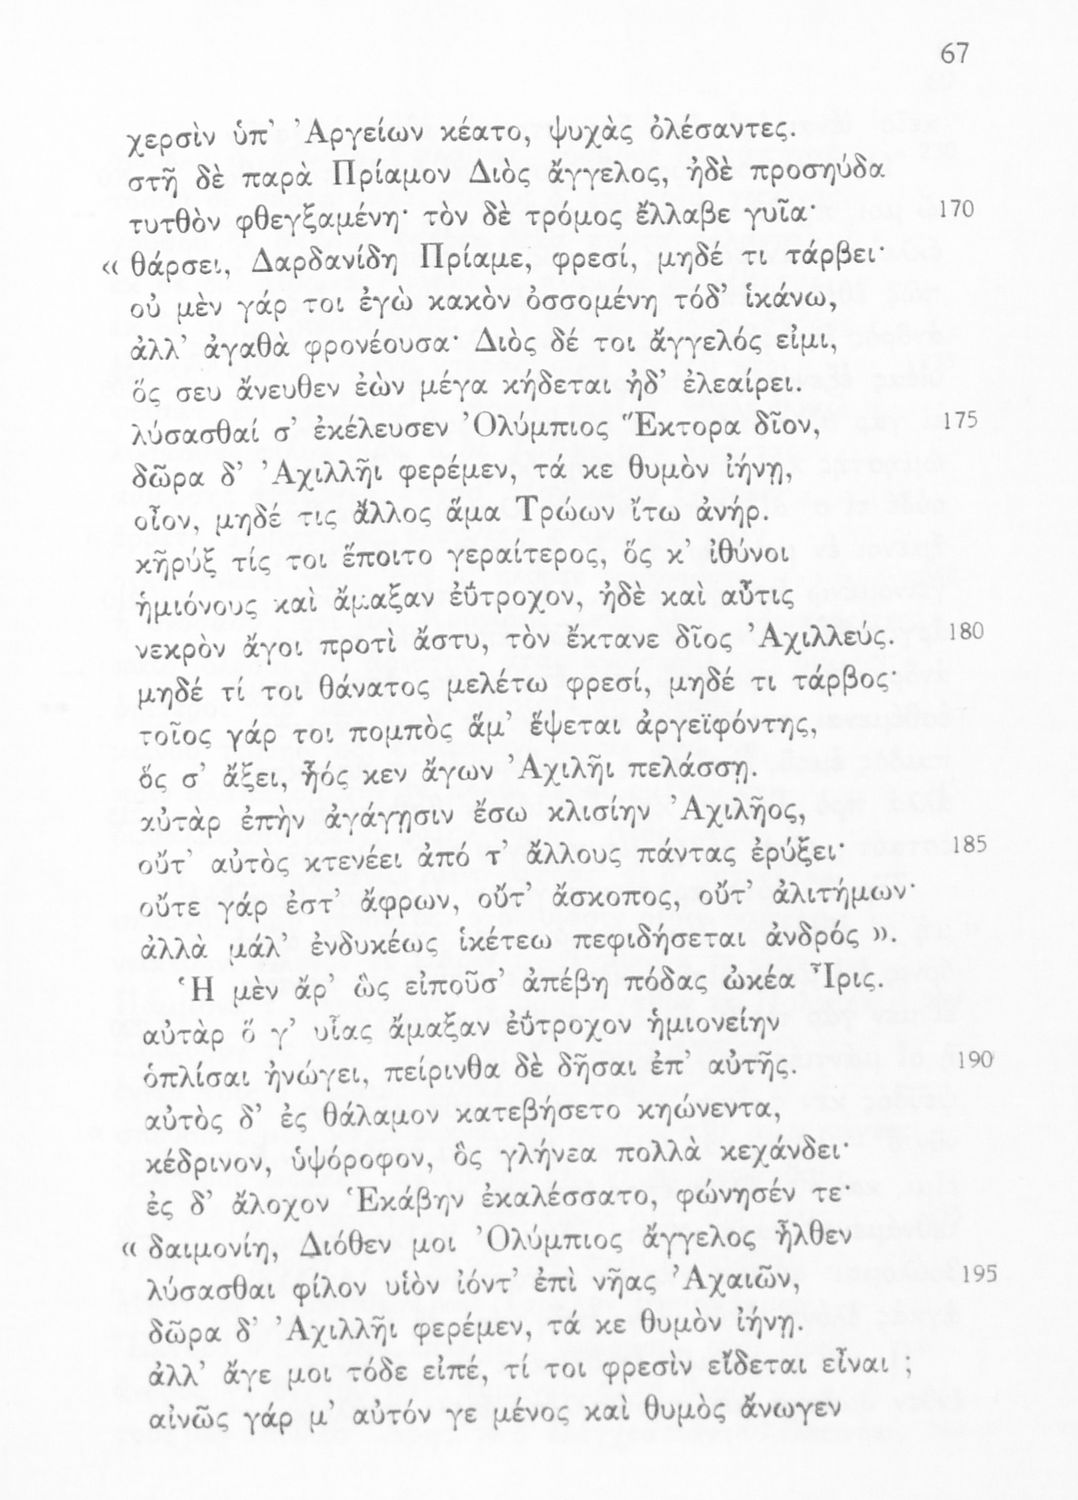 67
χερσὶν ὑπ’ Ἀργείων κέατο, ψυχὰς ὀλέσαντες.
στῆ δὲ παρὰ Πρίαμον Διὸς ἄγγελος, ἠδὲ προσηύδα
τυτθὸν φθεγξαμένη· τὸν δὲ τρόμος ἔλλαβε γυῖα· 170
« θάρσει, Δαρδανίδη Πρίαμε, φρεσί, μηδέ τι τάρβει·
οὐ μὲν γάρ τοι ἐγὼ κακὸν ὀσσομένη τόδ’ ἱκάνω,
ἀλλ’ ἀγαθὰ φρονέουσα· Διὸς δέ τοι ἄγγελός εἰμι,
ὅς σευ ἄνευθεν ἐὼν μέγα κήδεται ἠδ’ ἐλεαίρει.
λύσασθαί σ’ ἐκέλευσεν Ὀλύμπιος Ἕκτορα δῖον, 175
δῶρα δ’ Ἀχιλλῆι φερέμεν, τά κε θυμὸν ἰήνῃ,
οἶον, μηδέ τις ἄλλος ἅμα Τρώων ἴτω ἀνήρ.
κῆρύξ τίς τοι ἕποιτο γεραίτερος, ὅς κ’ ἰθύνοι
ἡμιόνους καὶ ἄμαξαν ἐΰτροχον, ἠδὲ καὶ αὖτις
νεκρὸν ἄγοι προτὶ ἄστυ, τὸν ἔκτανε δῖος Ἀχιλλεύς. 180
μηδέ τί τοι θάνατος μελέτω φρεσί, μηδέ τι τάρβος·
τοῖος γάρ τοι πομπὸς ἅμ’ ἕψεται ἀργεϊφόντης,
ὅς σ’ ἄξει, ἧός κεν ἄγων Ἀχιλῆι πελάσσῃ.
αὐτὰρ ἐπὴν ἀγάγῃσιν ἔσω κλισίην Ἀχιλῆος,
οὔτ’ αὐτὸς κτενέει ἀπό τ’ ἄλλους πάντας ἐρύξει· 185
οὔτε γάρ ἐστ’ ἄφρων, οὔτ’ ἄσκοπος, οὔτ’ ἀλιτήμων·
ἀλλὰ μάλ’ ἐνδυκέως ἱκέτεω πεφιδήσεται ἀνδρός ».
Ἡ μὲν ἄρ’ ὣς εἰποῦσ’ ἀπέβη πόδας ὠκέα Ἶρις.
αὐτὰρ ὅ γ’ υἷας ἄμαξαν ἐΰτροχον ἡμιονείην
ὁπλίσαι ἠνώγει, πείρινθα δὲ δῆσαι ἐπ’ αὐτῆς. 190
αὐτὸς δ’ ἐς θάλαμον κατεβήσετο κηώνεντα,
κέδρινον, ὑψόροφον, ὃς γλήνεα πολλὰ κεχάνδει·
ἐς δ’ ἄλοχον Ἑκάβην ἐκαλέσσατο, φώνησέν τε·
« δαιμονίη, Διόθεν μοι Ὀλύμπιος ἄγγελος ἦλθεν
λύσασθαι φίλον υἱὸν ἰόντ’ ἐπὶ νῆας Ἀχαιῶν, 195
δῶρα δ’ Ἀχιλλῆι φερέμεν, τά κε θυμὸν ἰήνῃ.
ἀλλ’ ἄγε μοι τόδε εἰπέ, τί τοι φρεσὶν εἴδεται εἶναι ;
αἰνῶς γάρ μ’ αὐτόν γε μένος καὶ θυμὸς ἄνωγεν